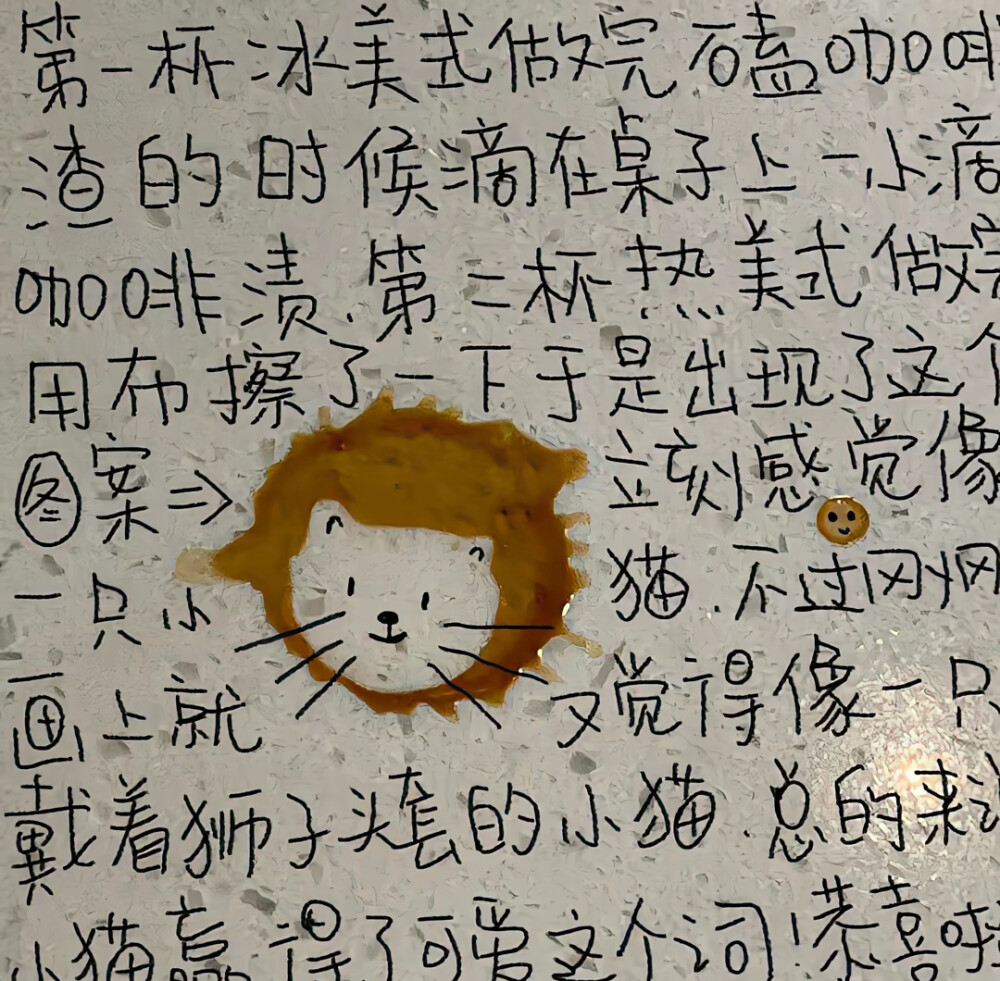 第一杯冰美式做完磕咖啡
渣的时候滴在桌子上一小滴
咖啡渍.第二杯热美式做完
用布擦了一下于是出现了这个
图案⇒立刻感觉像
一只小猫.不过刚刚
画上就又觉得像一只
戴着狮子头套的小猫.总的来说
小猫赢得了可爱这个词!恭喜啦